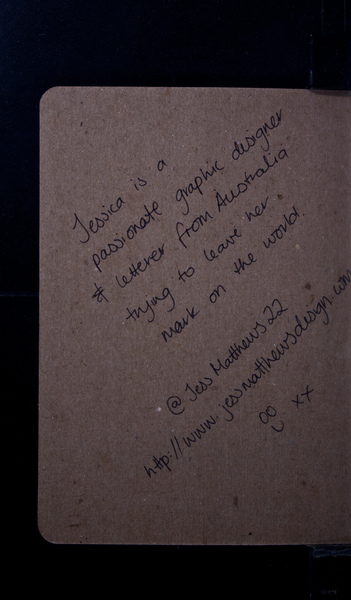 Jessica is a
passionate graphic designer
& letterer from Australia
trying to leave her
mark on the world.
@JessMatthews22
http://www.jessmatthewsdesign.com
xx